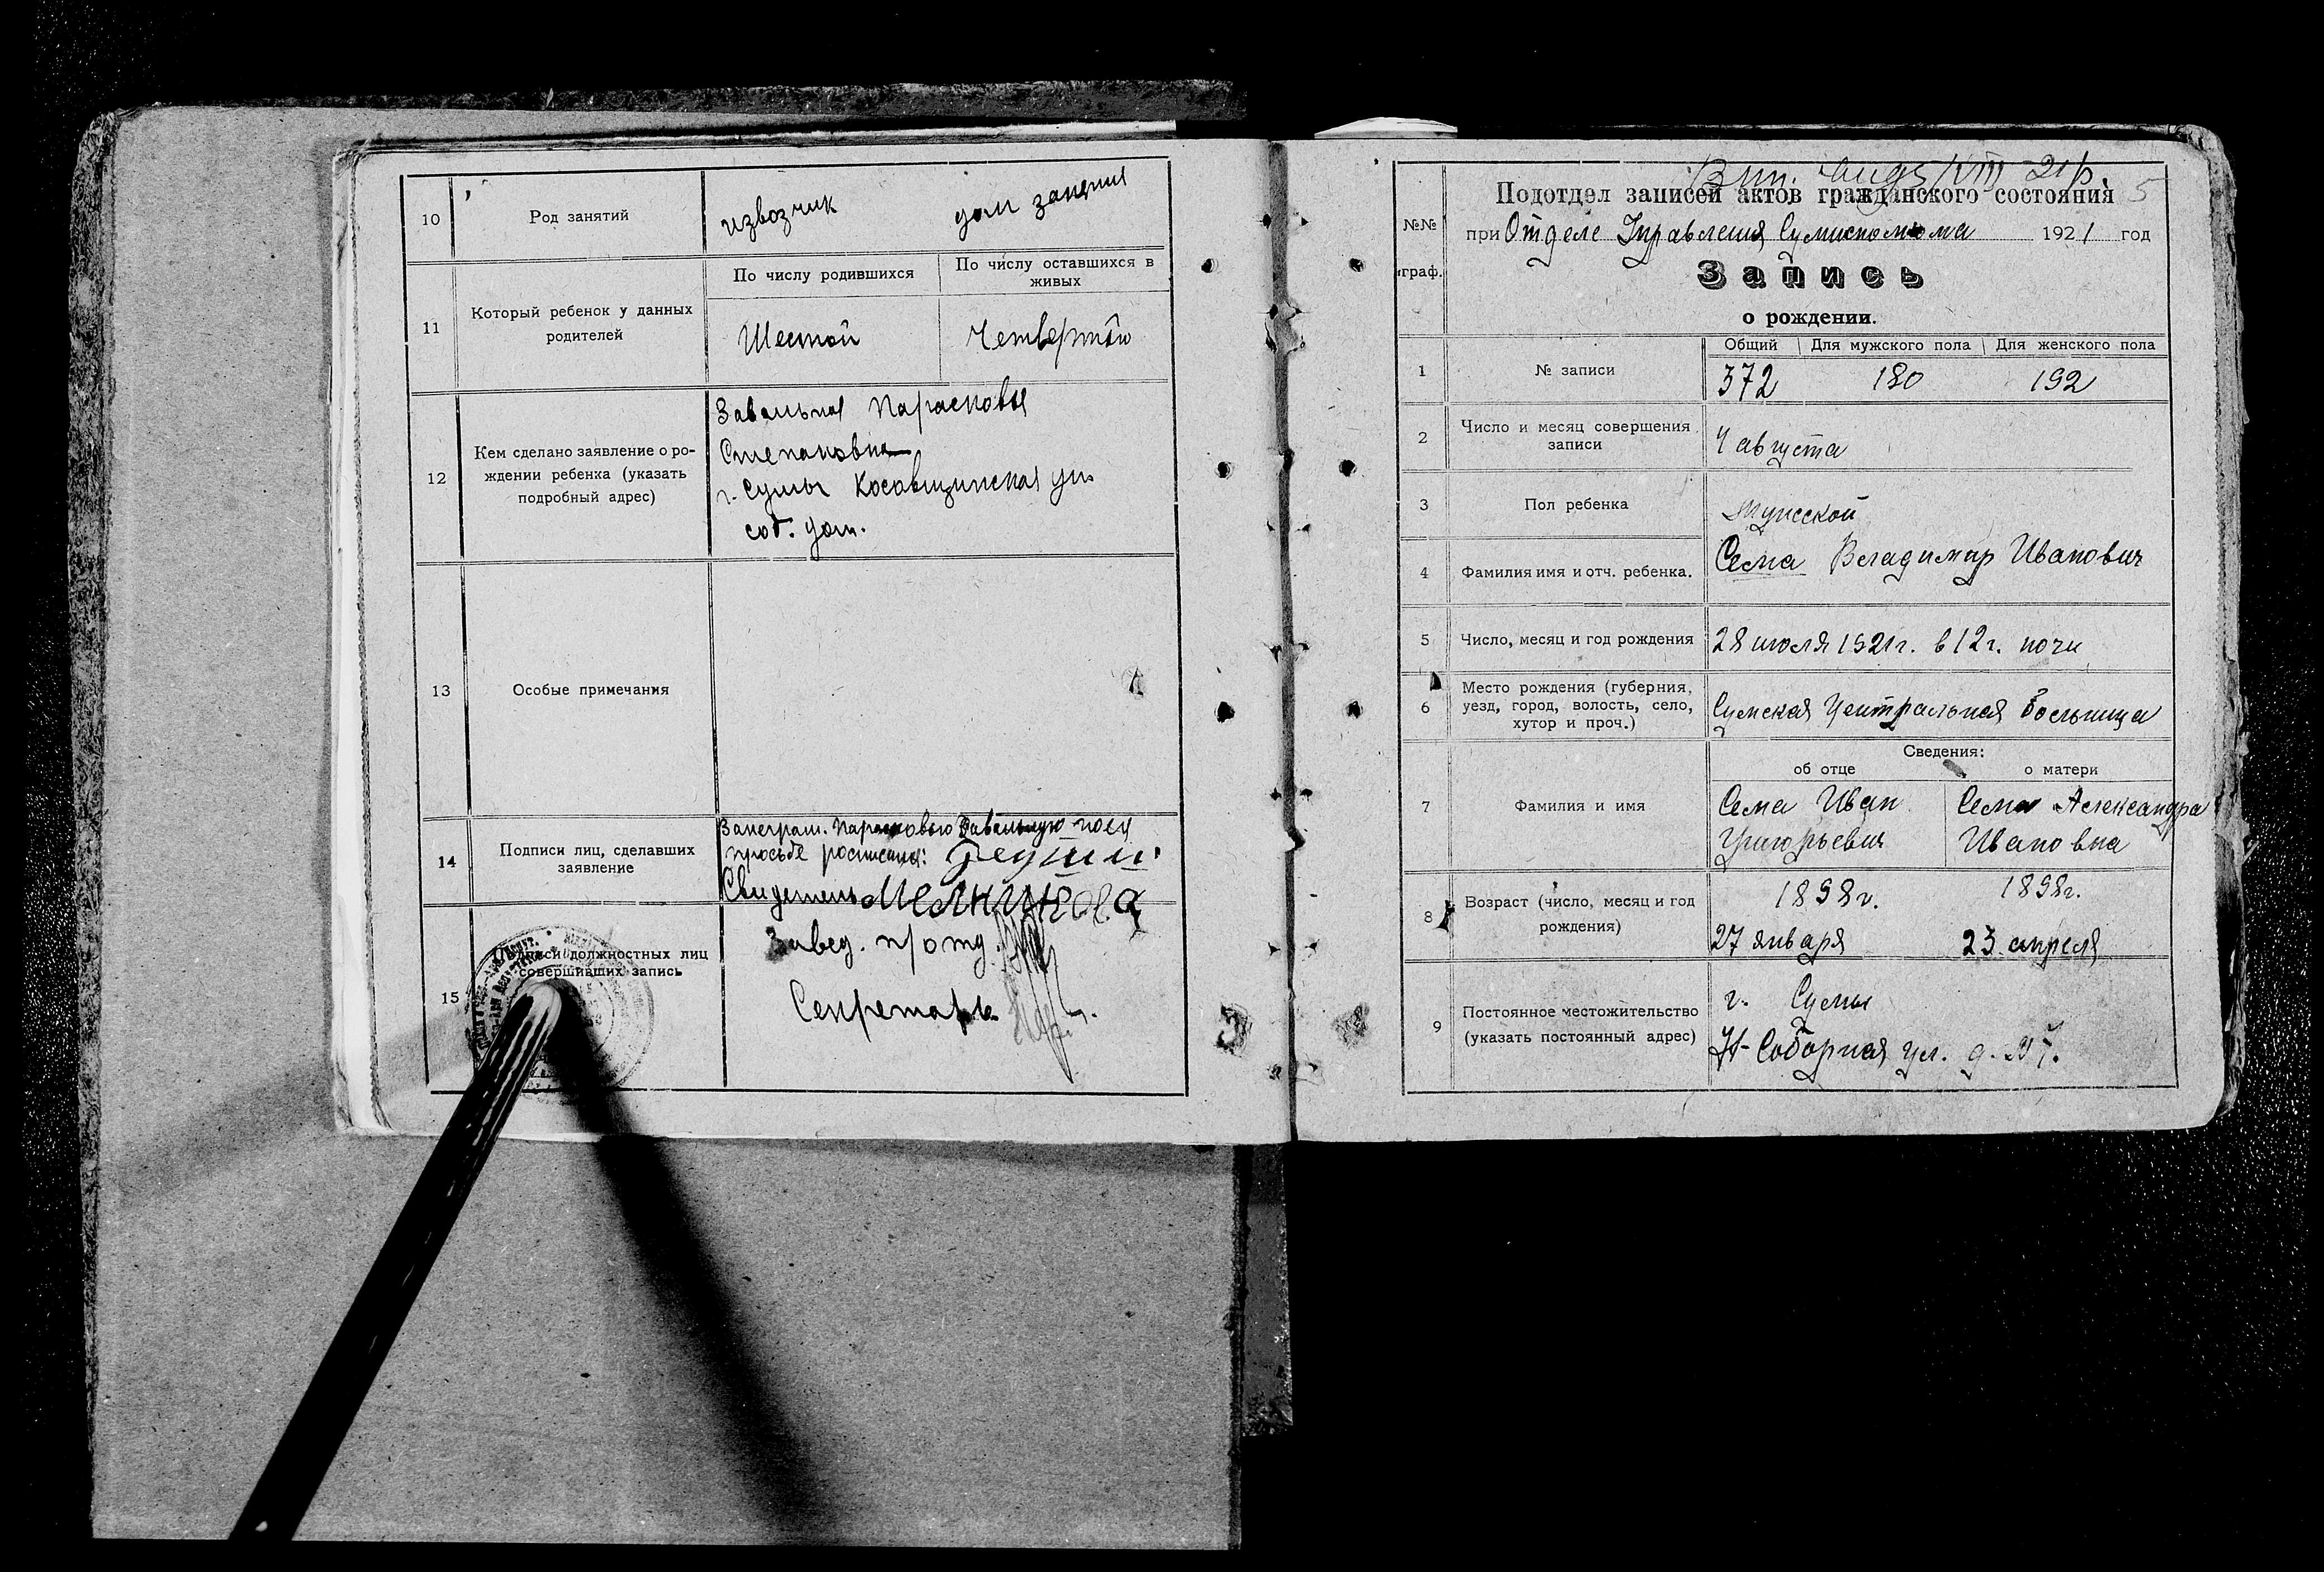 10
Род занятий
извозчик
дом занятия
11
Который ребенок у данных
родителей
По числу родившихся
По числу оставшихся в
живых
Шестой
Четвертый
12
Кем сделано заявление о ро-
ждении ребенка (указать
подробный адрес)
Завальная Парасковья
Степановна
г. Сумы Косовщинская ул.
соб. дом.
13
Особые примечания
14
Подписи лиц, сделавших
заявление
Занеграм. Парасковью Завальную по ея
просьбе росписался:
Свидетель
15
Подписи должностных лиц
совершивших запись
Завед. п/отд.
Секретарь
5
№№
граф.
Подотдел записей актов гражданского состояния
при Отделе Управления Сумисполкома 1921 год
Запись
о рождении.
1
№ записи
Общий Для мужского пола Для женского пола
372 180 192
2
Число и месяц совершения
записи
4 августа
3
Пол ребенка
Мужеской
4
Фамилия имя и отч. ребенка.
Сема Владимир Иванович
5
Число, месяц и год рождения
28 июля 1921 г. в 12 г. ночи
6
Место рождения (губерния,
уезд, город, волость, село,
хутор и проч.)
Сумская Центральная больница
7
Фамилия и имя
Сведения:
об отце
о матери
Сема Иван
Григорьевич
Сема Александра
Ивановна
8
Возраст (число, месяц и год
рождения)
1898 г.
27 января
1898 г.
23 апреля
9
Постоянное местожительство
(указать постоянный адрес)
г. Сумы
Н-Соборная ул. д.